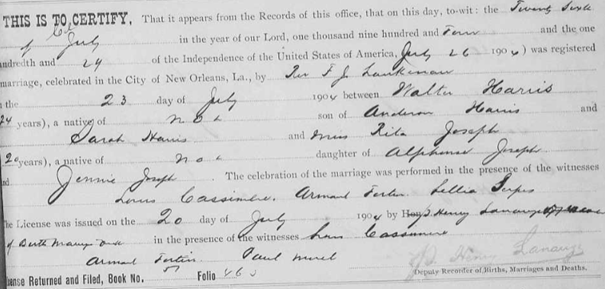 THIS IS TO CERTIFY, That it appears from the Records of this office, that on this day, to-wit: the Twenty Sixth
of July in the year of our Lord, one thousand nine hundred and Four and the one
undredth and 29 of the Independence of the United States of America, July 26 1904) was registered
marriage, celebrated in the City of New Orleans, La., by Rev F J
n the 23 day of July 1904 between Walter Harris
24 years), a native of N O L son of Anderson Harris and
Sarah Harris and Miss Rita Joseph
20 years), a native of N O L daughter of Alphonse Joseph
nd Jennie Joseph The celebration of the marriage was performed in the presence of the witnesses
Louis Cassimere, Armand Fortin,
he License was issued on the 20 day of July 1904 by Hoy J. Henry Lanauze
of Birth in the presence of the witnesses Louis Cassimere
Armand Fortin Paul Morel
J. Henry Lanauze
Deputy Recorder of Births, Marriages and Deaths.
cense Returned and Filed, Book No. Folio